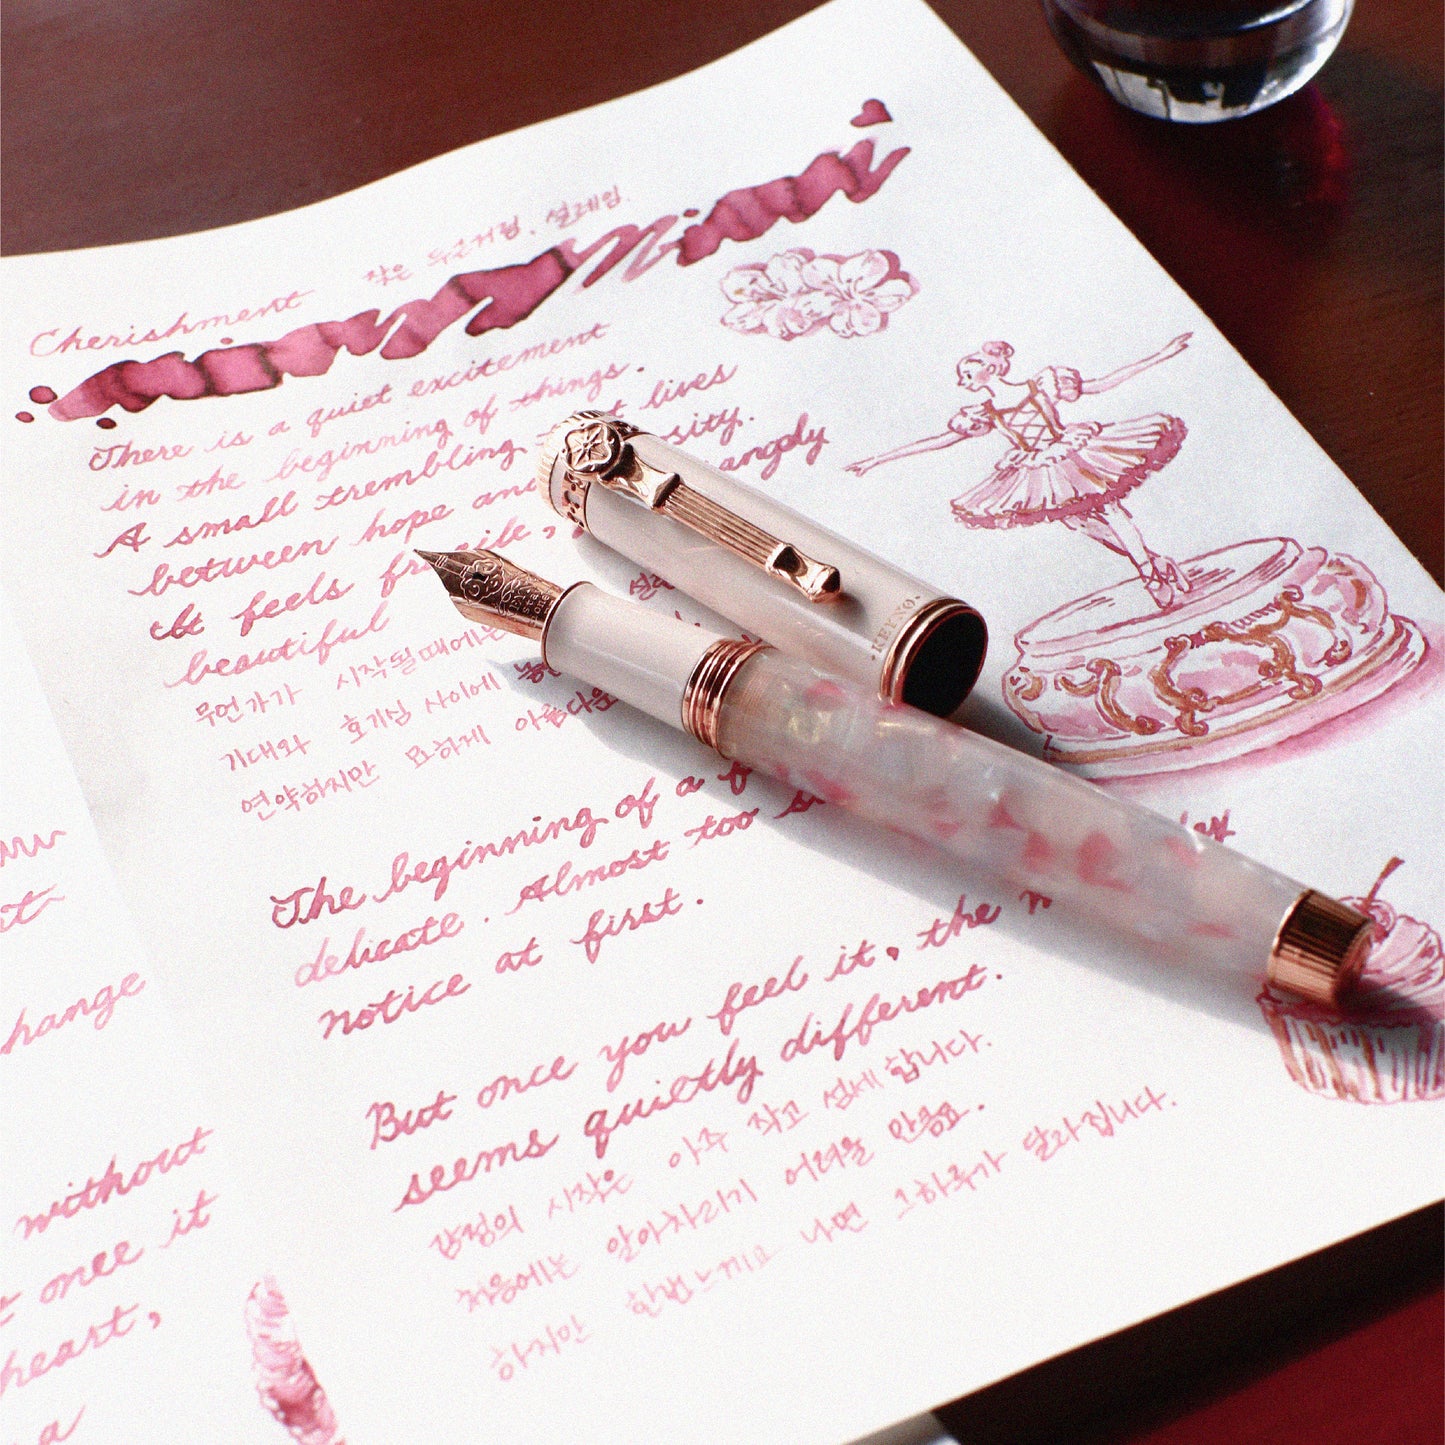 Cherishment 작은 두근거림, 설레임.
There is a quiet excitement
in the beginning of things.
A small trembling that lives
between hope and sity.
It feels fragile, angely
beautiful
무언가가 시작될 때에는 설레
기대와 호기심 사이에
연약하지만 묘하게 아름다운
The beginning of a f
delicate. Almost too s
notice at first.
But once you feel it, the
seems quietly different.
감정의 시작은 아주 작고 섬세합니다.
처음에는 알아차리기 어려울 만큼요.
하지만 한번 느끼고 나면 그 하루가 달라집니다.
hange
without
t once it
heart,
a
KEYNO